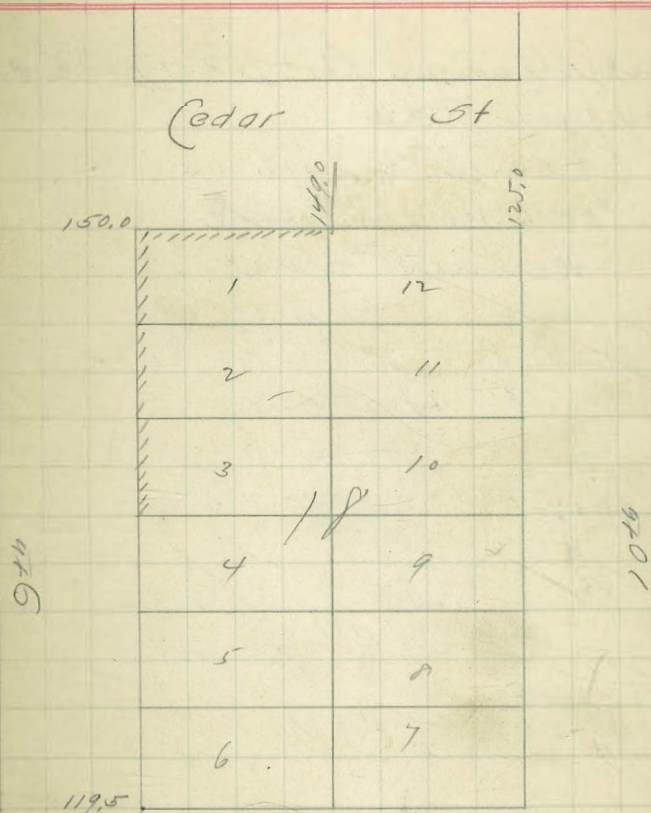 Cedar St
150.0 149.0 125.0
1 12
2 11
3 10
18
4 9
9th 10th
5 8
6 7
119.5